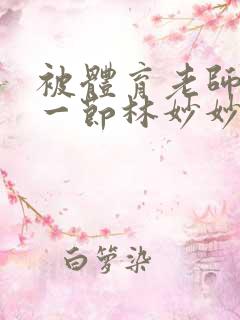 被體育老師
一節林妙妙
白箩染